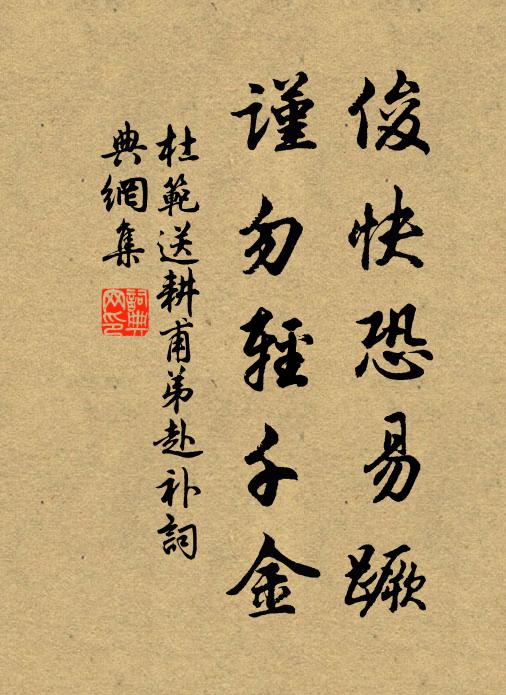 俊快恐易蹶
謹勿輕千金
杜範送耕甫弟赴补詞
典網集
詞典
网印